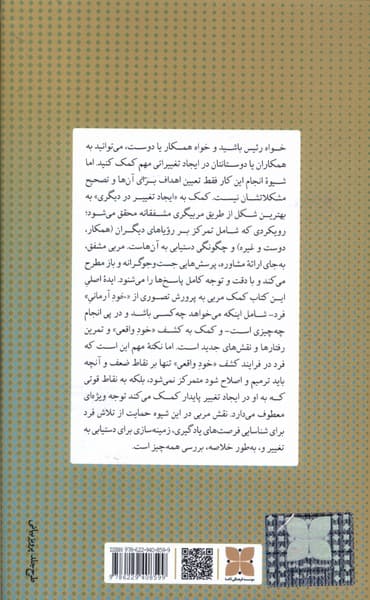 خواه رئیس باشید و خواه همکار یا دوست، می‌توانید به
همکاران یا دوستانتان در ایجاد تغییراتی مهم کمک کنید. اما
شیوهٔ انجام این کار فقط تعیین اهداف برای آن‌ها و تصحیح
مشکلاتشان نیست. کمک به «ایجاد تغییر در دیگری» به
بهترین شکل از طریق مربیگری مشفقانه محقق می‌شود؛
رویکردی که شامل تمرکز بر رؤیاهای دیگران (همکار،
دوست و غیره) و چگونگی دستیابی به آن‌هاست. مربی مشفق،
به‌جای ارائهٔ مشاوره، پرسش‌هایی جست‌وجوگرانه و باز مطرح
می‌کند و با دقت و توجه کامل پاسخ‌ها را می‌شنود. ایدهٔ اصلی
این کتاب کمک مربی به پرورش تصوری از «خودِ آرمانی»
فرد- شامل اینکه می‌خواهد چه‌کسی باشد و در پی انجام
چه‌چیزی است- و کمک به کشف «خودِ واقعی» و تمرین
رفتارها و نقش‌های جدید است. اما نکتهٔ مهم این است که
فرد در فرایند کشف «خودِ واقعی» تنها بر نقاط ضعف و آنچه
باید ترمیم و اصلاح شود متمرکز نمی‌شود، بلکه به نقاط قوتی
که به او در ایجاد تغییر پایدار کمک می‌کند توجه ویژه‌ای
معطوف می‌دارد. نقش مربی در این شیوه حمایت از تلاش فرد
برای شناسایی فرصت‌های یادگیری، زمینه‌سازی برای دستیابی به
تغییر و، به‌طور خلاصه، بررسی همه‌چیز است.
طرح جلد: پرویز بیانی
ISBN: 978-622-940-859-9
9786229408599